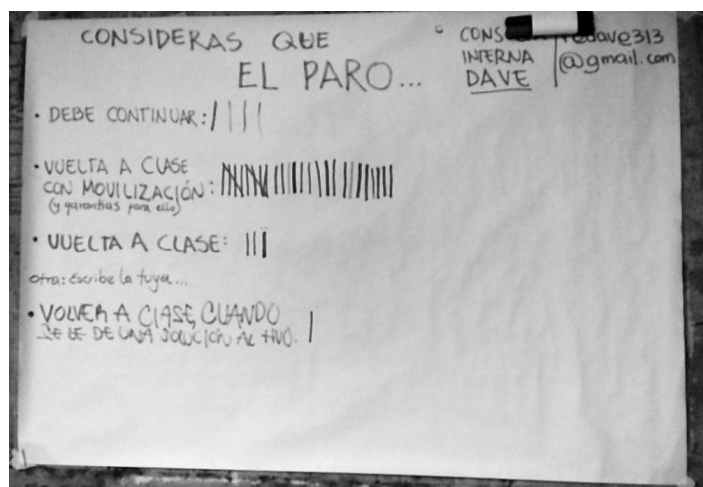 CONSIDERAS QUE
EL PARO...
CONS
INTERNA
DAVE
redave313
@gmail.com
• DEBE CONTINUAR:
• VUELTA A CLASE
CON MOVILIZACIÓN:
(y garantías para ello)
• VUELTA A CLASE:
otra: escribe la tuya...
• VOLVER A CLASE, CUANDO
SE LE DE UNA SOLUCIÓN AL